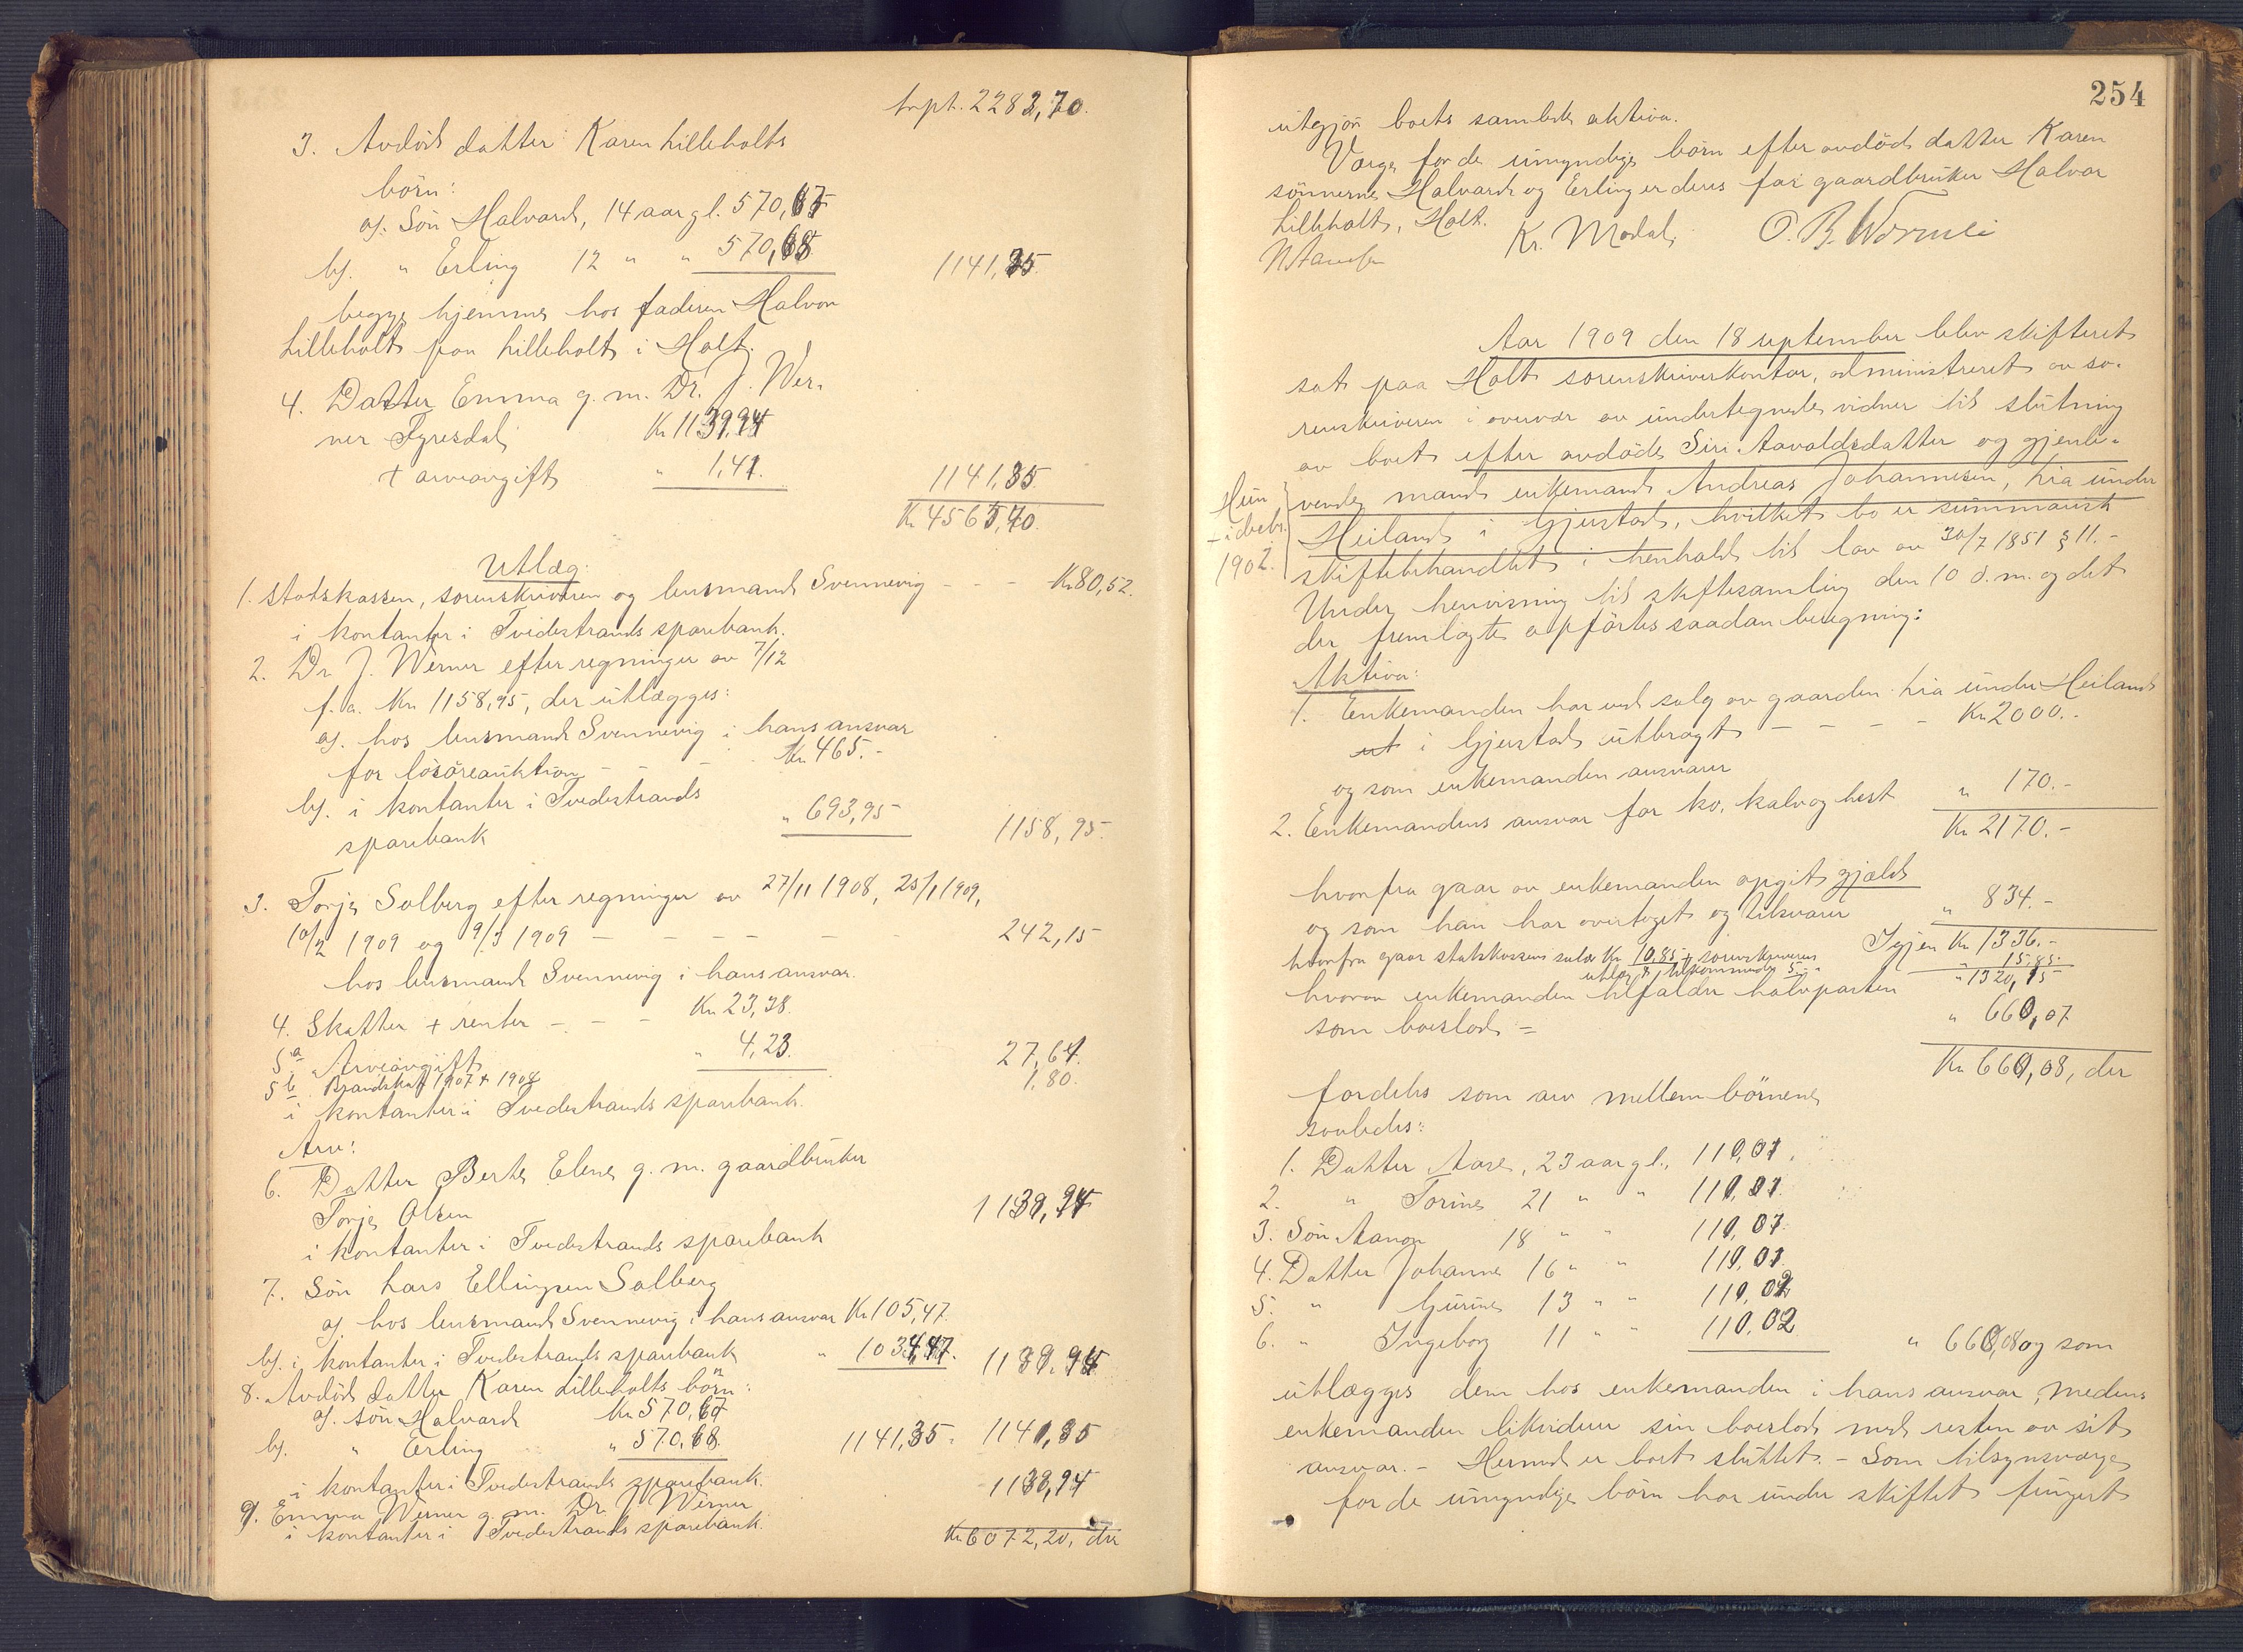 Trpt. 2282,70.
3. Avdød datter Karen Lilleholts
børn:
a). Søn Halvard, 14 aar gl. 570,67
b). " Erling 12 " " 570,68
1141,35
begge hjemme hos faderen Halvor
Lilleholt paa Lilleholt i Holt.
4. Datter Emma g. m. Dr. J. Wer-
ner Tyresdal Kr 1139,94
+ arveavgift " 1,41.
1141,35
Kr. 4565,40.
Utlæg:
1. Statskassen, sorenskriveren og lensmand Svennevig - - - Kr 80,52.
i kontanter i Tvedestrands sparebank.
2. Dr J. Werner efter regninger av 7/12
f. a. Kr 1158,95, der utlægges:
a). hos lensmand Svennevig i hans ansvar
for løsøreauktion - - - Kr 465.-
b). i kontanter i Tvedestrands
sparebank " 693,95
1158,95.
3. Torje Solberg efter regninger av 27/11 1908, 25/1 1909,
10/2 1909 og 9/3 1909 - - - - - 242,15
hos lensmand Svennevig i hans ansvar.
4. Skatter + renter - - - Kr 23,38.
5 a Arveavgift " 4,23. 27,61.
5 b Brandskat 1907 + 1908 1,80.
i kontanter i Tvedestrands sparebank.
Arv:
6. Datter Berte Elene g. m. gaardbruker
Torje Olsen 1139,94
i kontanter i Tvedestrands sparebank
7. Søn Lars Ellingsen Solberg
a). hos lensmand Svennevig i hans ansvar Kr 105,47.
b). i kontanter i Tvedestrands sparebank " 1034,47. 1139,94
8. Avdød datter Karen Lilleholts børn:
a). søn Halvard Kr 570,67
b). " Erling " 570,68. 1141,35. 1141,35
i kontanter i Tvedestrands sparebank.
9. Emma Werner g. m. Dr. J. Werner 1139,94
i kontanter i Tvedestrands sparebank.
Kr 6072,20, der
254
utgjør boets samlede aktiva.
Verge for de umyndige børn efter avdød datter Karen
sønnerne Halvard og Erling er deres far gaardbruker Halvor
Lilleholt, Holt.
Kr. Modal. O. B. Wormli
Aar 1909 den 18 september blev skifteret
sat paa Holt sorenskriverkontor, administreret av so-
renskriveren i overvær av undertegnede vidner til slutning
av boet efter avdøde Siri Aavoldsdatter og gjenle-
vende mand enkemand Andreas Johannesen, Lia under
Heiland i Gjerstad, hvilket bo er summarisk
skiftebehandlet i henhold til lov av 30/7 1851 § 11.-
Hun
- i debr.
1902.
Under henvisning til skiftesamling den 10 d. m. og det
der fremlagte opførtes saadan beregning:
Aktiva:
1. Enkemanden har ved salg av gaarden Lia under Heiland
ut i Gjerstad utbragt - - - - Kr 2000.-
og som enkemanden ansvarer
2. Enkemandens ansvar for ko, kalv og hest " 170.-
Kr 2170.-
hvorfra gaar av enkemanden opgit gjæld
og som han har overtaget og tilsvarer " 834.-
Igjen Kr 1336.-
hvorfra gaar statskassens salær Kr 10,85 + sorenskriverens
utlæg & tilkommende 5.- " 15,85.
" 1320,15
hvorav enkemanden tilfalder halvparten
som boeslod = " 660,07
Kr 660,08, der
fordeles som arv mellem børnene
saaledes:
1. Datter Aase, 23 aar gl., 110,01.
2. " Torine 21 " " 110,01.
3. Søn Aanon 18 " " 110,01.
4. Datter Johanne 16 " " 110,01.
5. " Gurine 13 " " 110,02
6. " Ingeborg 11 " " 110,02 " 660,08 og som
utlægges dem hos enkemanden i hans ansvar, medens
enkemanden likviderer sin boeslod med resten av sit
ansvar.- Hermed er boet sluttet.- Som tilsynsverge
for de umyndige børn har under skiftet fungert